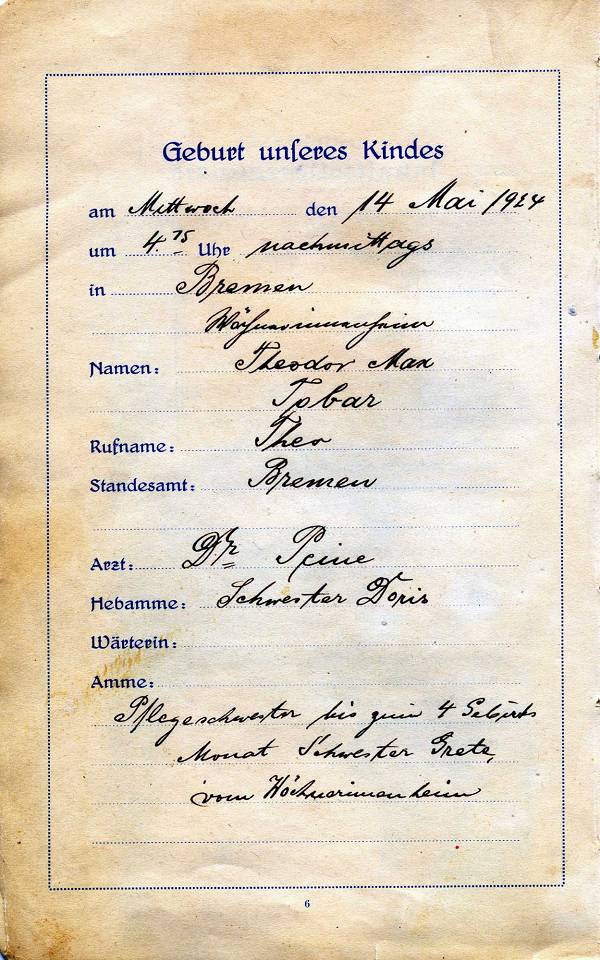 Geburt unseres Kindes
am Mittwoch den 14 Mai 1924
um 4.15 Uhr nachmittags
in Bremen
Wöchnerinnenheim
Namen: Theodor Max
Tobar
Rufname: Theo
Standesamt: Bremen
Arzt: Dr Peine
Hebamme: Schwester Doris
Wärterin:
Amme:
Pflegeschwester bis zum 4 Geburts
Monat Schwester Grete,
vom Wöchnerinnenheim
6